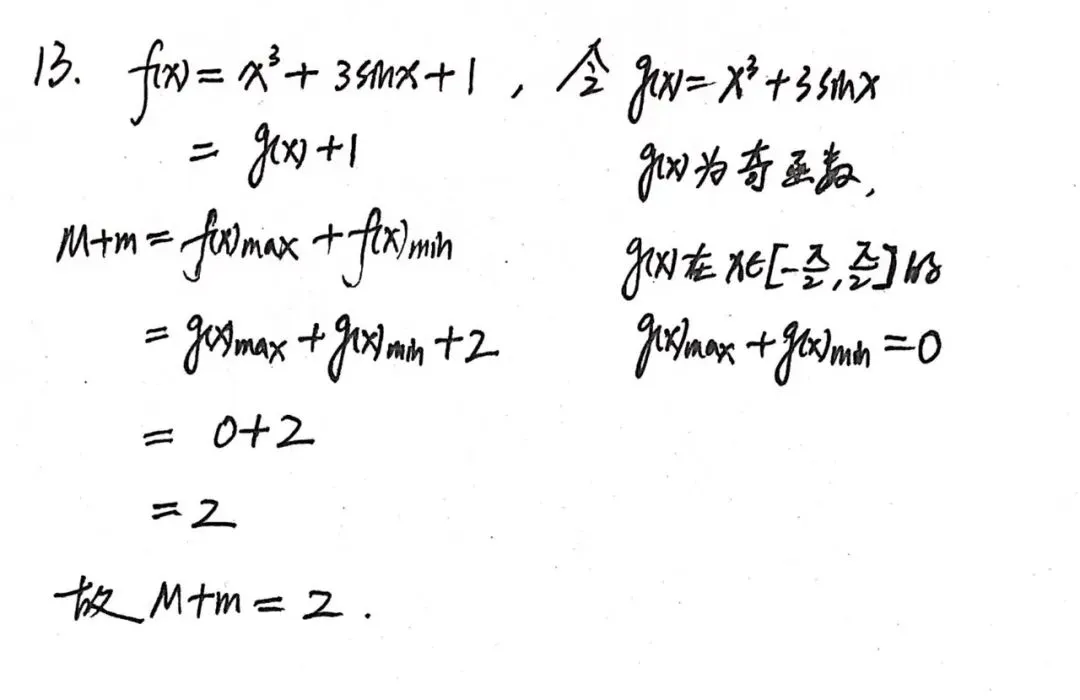 13. f(x) = x³ + 3sinx + 1 , 令 g(x) = x³ + 3sinx
= g(x) + 1
g(x)为奇函数,
M+m = f(x)max + f(x)min
g(x)在 x∈[-π/2, π/2]的
= g(x)max + g(x)min + 2
g(x)max + g(x)min = 0
= 0+2
= 2
故 M+m = 2 .